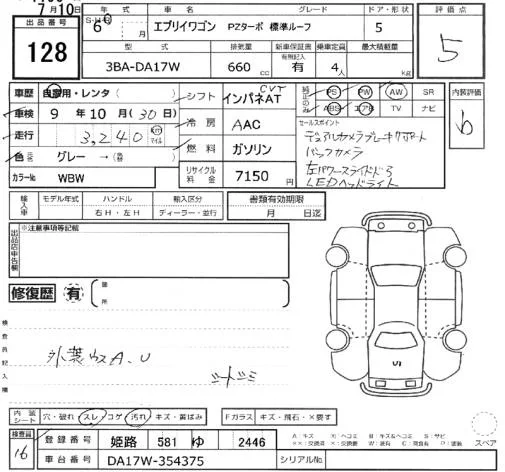 7月10日
出品番号
128
年式
車名
グレード
ドア・形状
S・H・R
6
月
エブリイワゴン
PZターボ 標準ルーフ
5
評価点
5
型式
排気量
新車保証書
乗車定員
最大積載量
3BA-DA17W
660 cc
有無記入
有
4人
kg
車歴 自家用・レンタ( )
車検 9年10月(30日)
走行 3,240 km マイル
色 グレー →(
カラーNo. WBW
シフト インパネAT CVT
冷房 AAC
燃料 ガソリン
リサイクル料金 7150円
純正のみ
PS PW AW SR
ABS エアB TV ナビ
セールスポイント
デュアルカメラブレーキサポート
バックカメラ
左パワースライドドア
LEDヘッドライト
内装評価
b
輸入車
モデル年式
ハンドル
輸入区分
右H・左H
ディーラー・並行
書類有効期限
月 日迄
出品店申告欄
※注意事項等記載
修復歴 有
箇所
検査員記入欄
外装ウスA.U
シートシミ
U1
内装シート
穴・破れ スレ コゲ 汚れ キズ・黄ばみ
Fガラス キズ・飛石・×要す
スペア
検査員
16
登録番号 姫路 581 ゆ 2446
車台番号 DA17W-354375
シリアルNo.
A:キズ